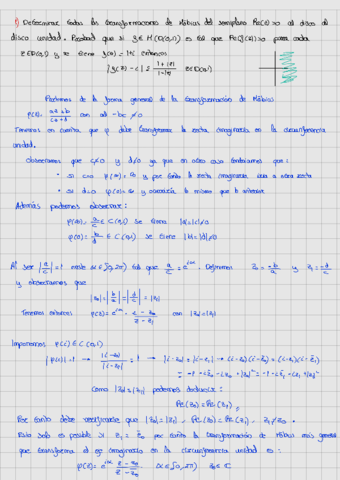 1) Determinar todas las transformaciones de Möbius del semiplano Re(z)>0 al disco
disco unidad. Probad que si g ∈ H(D(0,1)) es tal que Re(g(z))>0 para cada
z ∈ D(0,1) y se tiene g(0)=1 entonces
|g(z)| ≤ (1+|z|)/(1-|z|) z ∈ D(0,1)
Partimos de la forma general de la transformación de Möbius
φ(z) = (az+b)/(cz+d) con ad-bc ≠ 0
Tenemos en cuenta que φ debe transformar la recta imaginaria en la circunferencia
unidad.
Observamos que c≠0 y d≠0 ya que en otro caso tendríamos que:
• si c=0 φ(∞)=∞ y por tanto la recta imaginaria iría a otra recta
• si d=0 φ(0)=∞ y ocurriría lo mismo que lo anterior
Además podemos observar:
φ(∞) = a/c ∈ C(0,1) se tiene |a|=|c|≠0
φ(0) = b/d ∈ C(0,1) se tiene |b|=|d|≠0
Al ser |a/c|=1 existe α∈[0,2π) tal que a/c = e^{iα}. Definimos z₀ = -b/a y z₁ = -d/c
y observamos que
|z₀| = |b/a| = |d/c| = |z₁|
Tenemos entonces φ(z) = e^{iα} (z-z₀)/(z-z₁) con |z₀|=|z₁|
Imponemos φ(i) ∈ C(0,1)
|φ(i)|=1 → |i-z₀|/|i-z₁| = 1 → |i-z₀|=|i-z₁| →
Como |z₀|=|z₁| podemos deducir:
Por tanto debe verificarse que |z₀|=|z₁|,
Esto solo es posible si por tanto la transformación de Möbius más general
que transforma el eje imaginario en la circunferencia unidad es:
φ(z) = e^{iα} α∈[0,2π) z₀∈ℂ